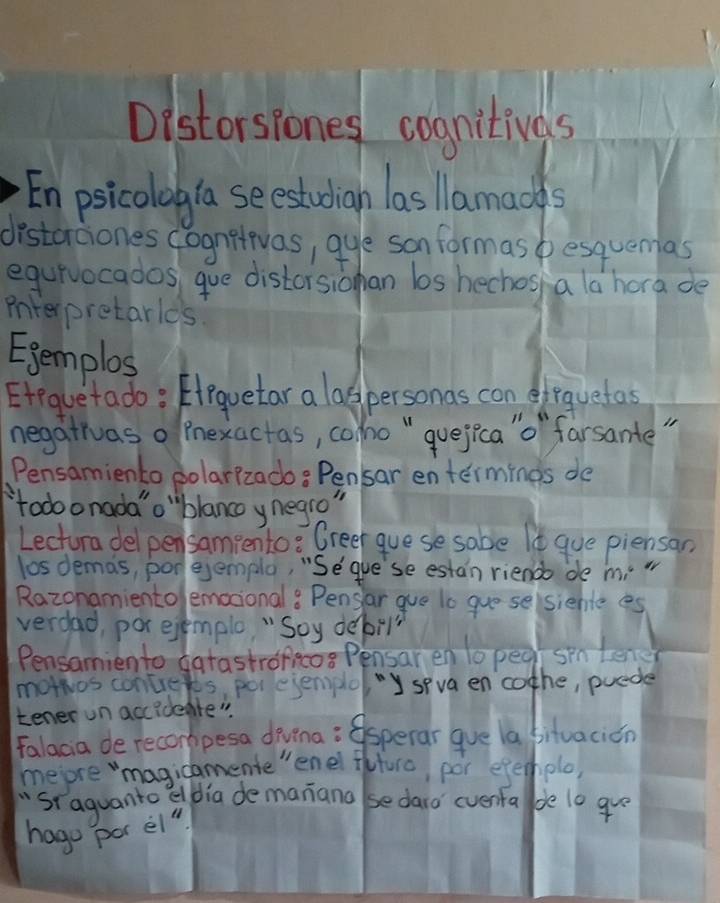 Distorsiones cognitivas
En psicología se estudian las llamadas
distorciones cognitivas, que son formas o esquemas
equivocados que distorsionan los hechos a la hora de
interpretarlos.
Ejemplos
Etiquetado: Etiquetar a las personas con etiquetas
negativas o inexactas, como "quejica" o "farsante"
Pensamiento polarizado: Pensar en términos de
"todo o nada" o "blanco y negro"
Lectura del pensamiento: Creer que se sabe lo que piensan
los demas, por ejemplo, "Sé que se están riendo de mi"
Razonamiento emocional: Pensar que lo que se siente es
verdad, por ejemplo, "Soy débil"
Pensamiento catastrófico: Pensar en lo peor sin tener
motivos concretos, por ejemplo, "y si va en coche, puede
tener un accidente".
Falacia de recompesa divina: Esperar que la situación
mejore "magicamente" en el futuro, por ejemplo,
"Si aguanto el día de mañana se dará cuenta de lo que
hago por él".